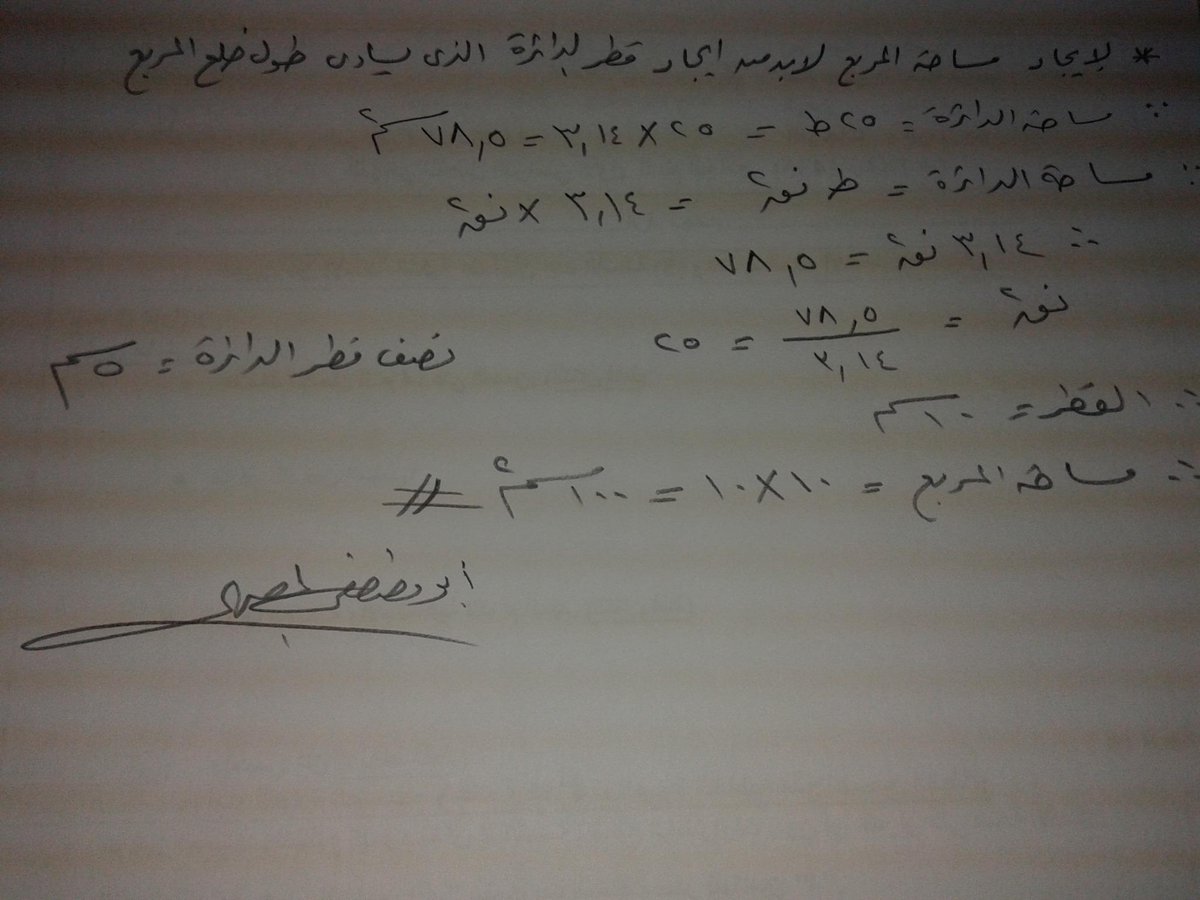 * لإيجاد مساحة المربع لابد من ايجاد قطر الدائرة الذى يساوى طول ضلع المربع
∵ مساحة الدائرة = ٢٥ط = ٢٥ × ٣,١٤ = ٧٨,٥ سم٢
∵ مساحة الدائرة = ط نق٢ = ٣,١٤ × نق٢
∴ ٣,١٤ نق٢ = ٧٨,٥
نق٢ = ٧٨,٥ / ٣,١٤ = ٢٥ نصف قطر الدائرة = ٥سم
∴ القطر = ١٠سم
∴ مساحة المربع = ١٠ × ١٠ = ١٠٠سم٢ #